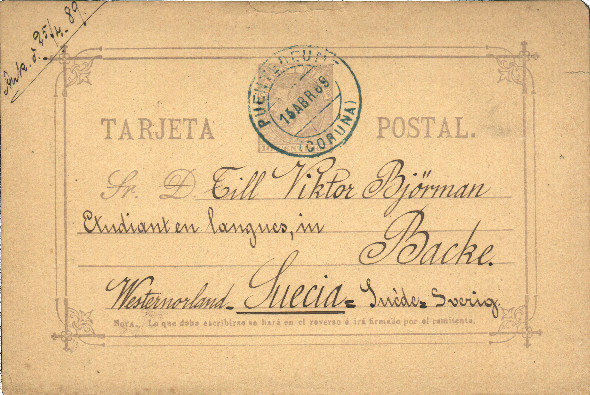 Ank. d. 25/4. 89.
PUENTEDEUME
15 ABR. 89
(CORUÑA)
TARJETA POSTAL.
Sr. D. Till Viktor Björman
Etudiant en langues, in
Backe.
Westernorland - Suecia = Suède = Sverig.
NOTA... Lo que debe escribirse se hará en el reverso é irá firmado por el remitente.